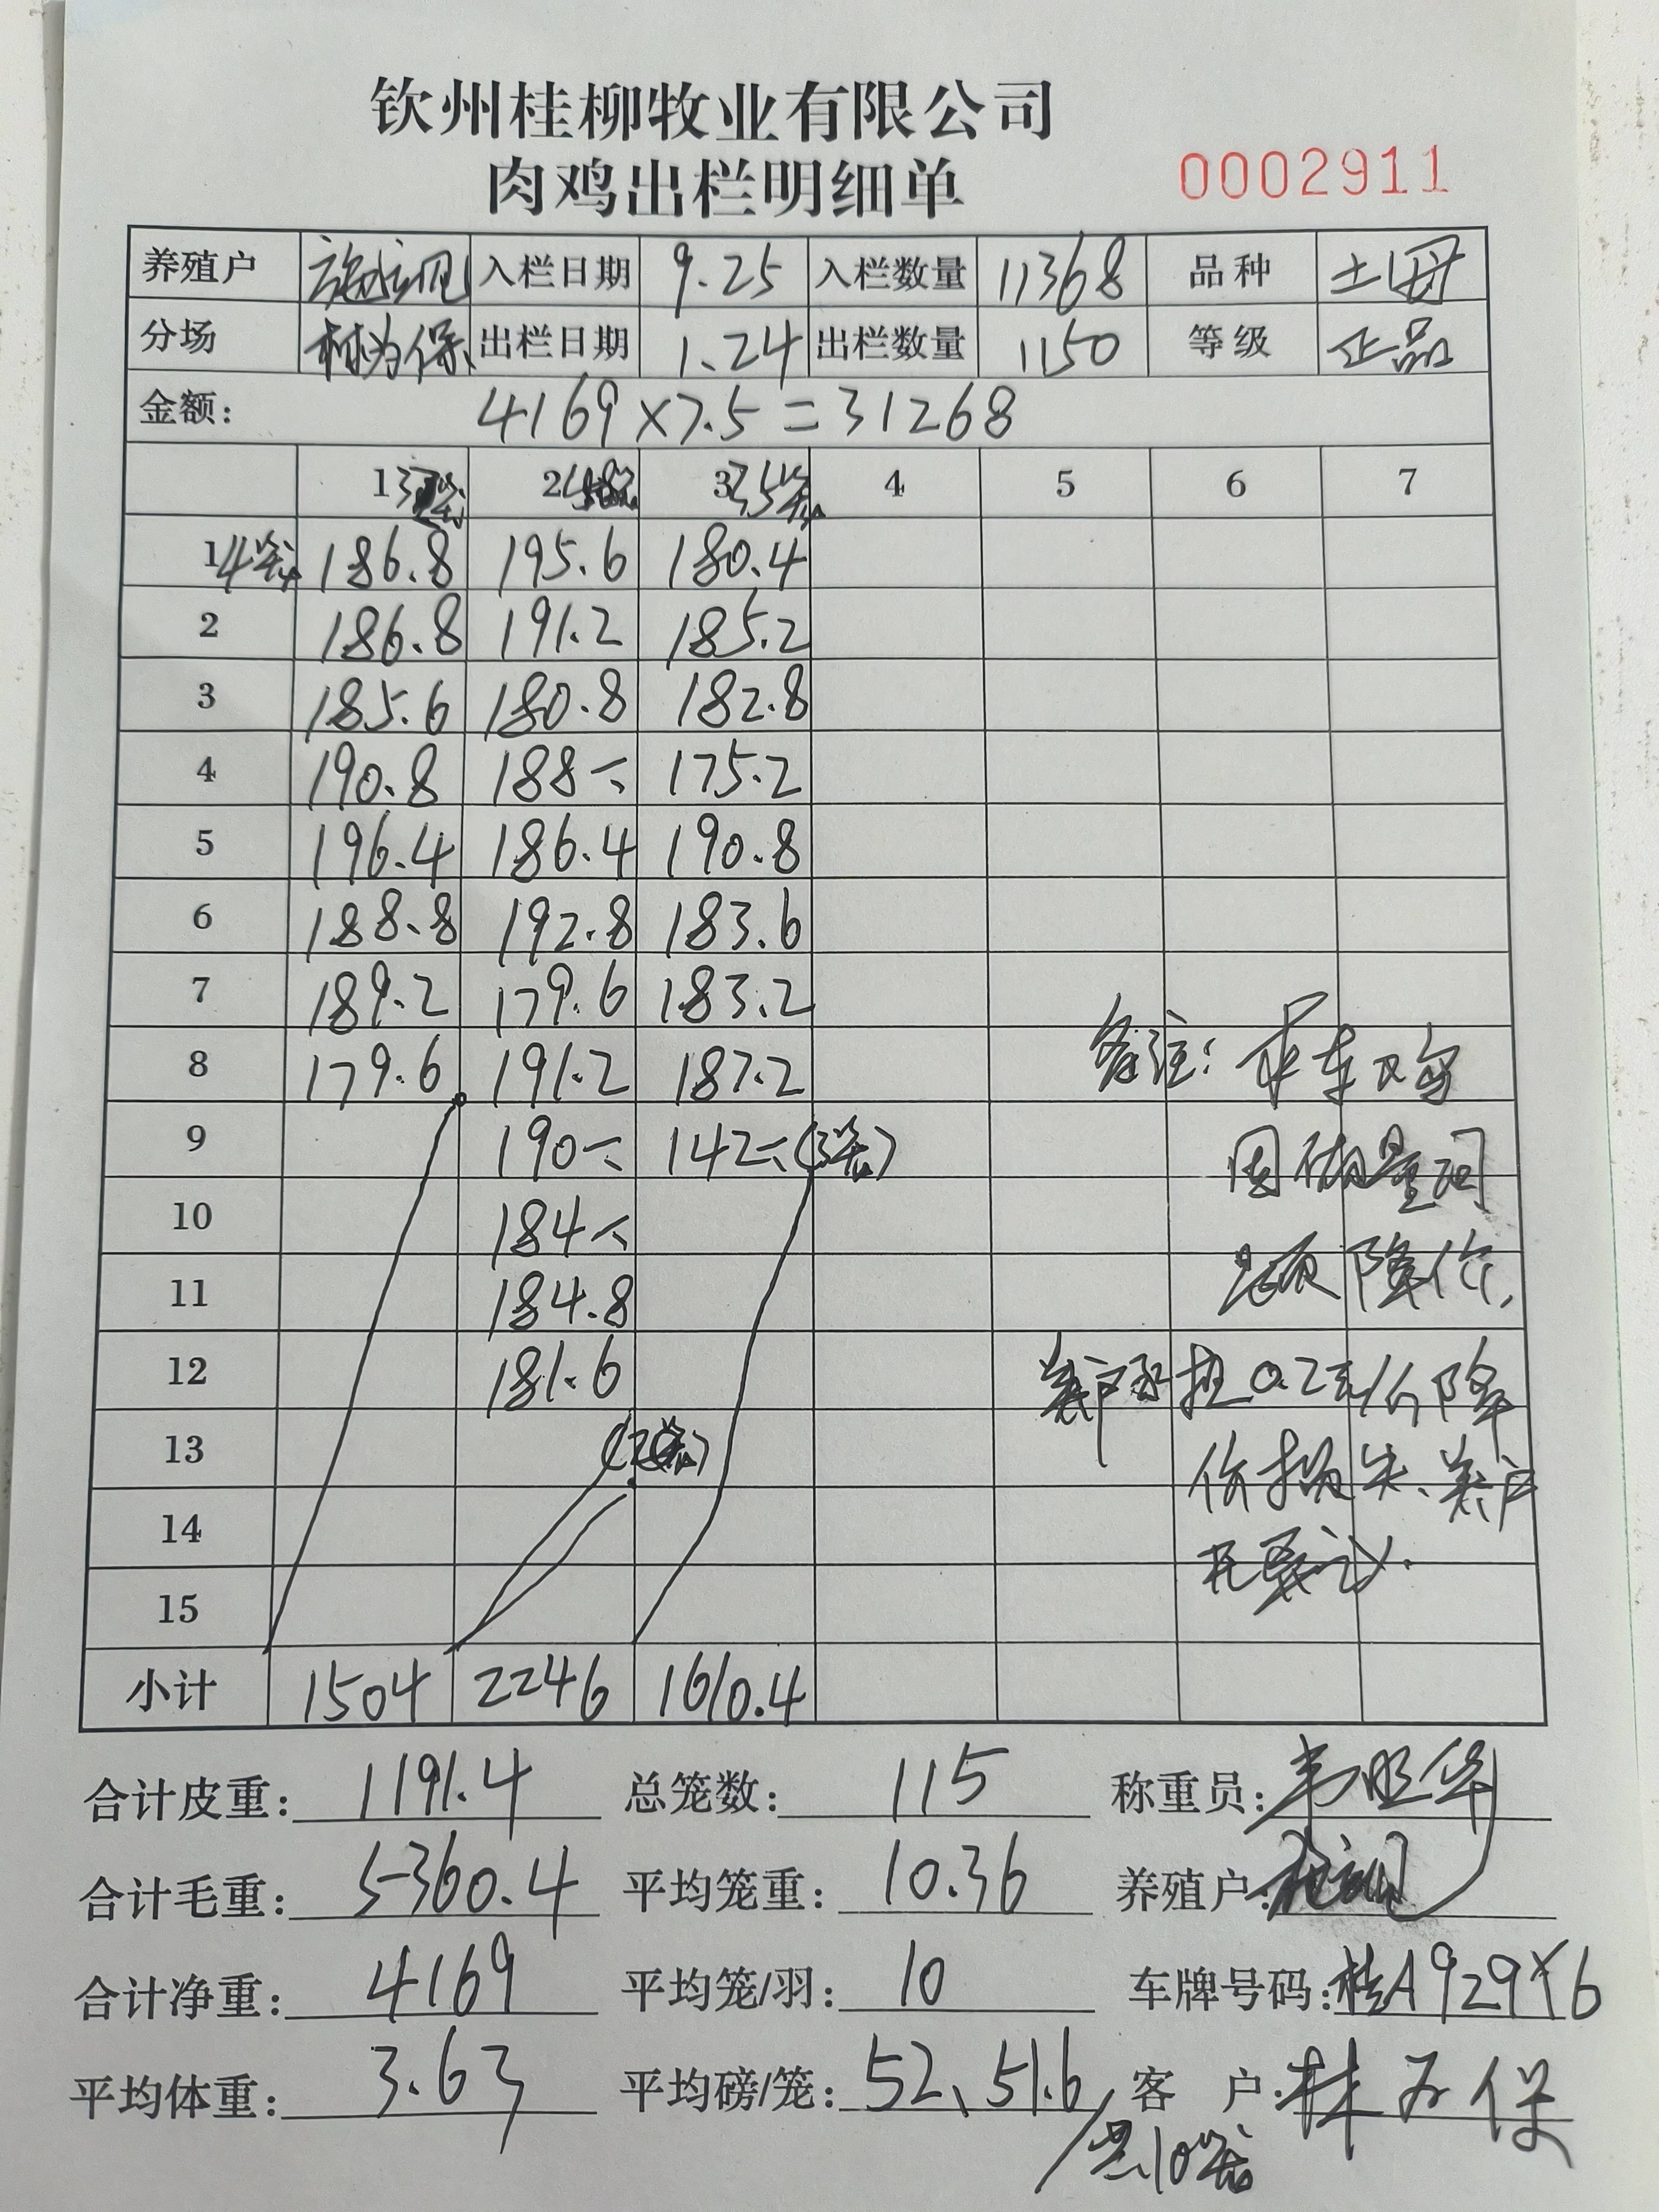 钦州桂柳牧业有限公司
肉鸡出栏明细单 0002911
养殖户 入栏日期 9.25 入栏数量 11368 品种 土母
分场 林为保 出栏日期 1.24 出栏数量 1150 等级 正品
金额: 4169×7.5=31268
1 2 3 35笼 4 5 6 7
1 4笼 186.8 195.6 180.4
2 186.8 191.2 185.2
3 185.6 180.8 182.8
4 190.8 188 175.2
5 196.4 186.4 190.8
6 188.8 192.8 183.6
7 189.2 179.6 183.2
8 179.6 191.2 187.2
备注:
9 190 142 (3笼)
10 184
11 184.8
降价,
12 181.6
养户承担0.2元/斤降
13
价损失、养户
14
已确认.
15
小计 1504 2246 1610.4
合计皮重: 1191.4 总笼数: 115 称重员:
合计毛重: 5360.4 平均笼重: 10.36 养殖户:
合计净重: 4169 平均笼/羽: 10 车牌号码: 桂A929Y6
平均体重: 3.63 平均磅/笼: 52、51.6 客户: 林为保
10笼